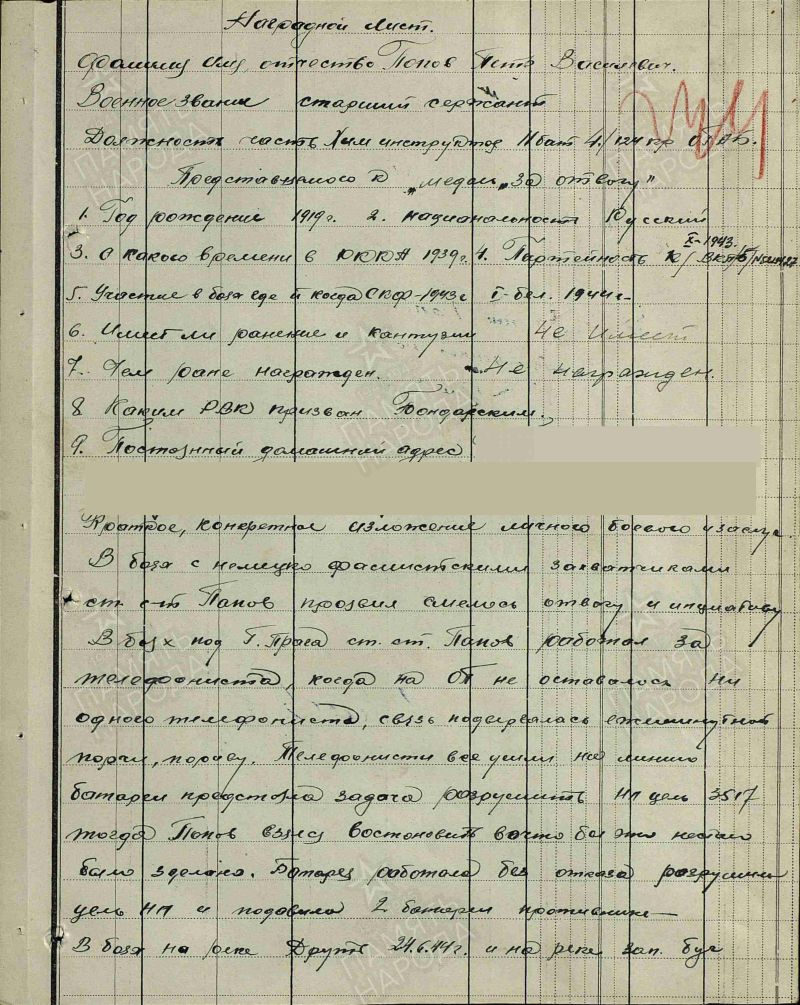 Наградной лист.
Фамилия Имя, отчество Попов Петр Василевич.
Военное звание старший сержант
Должность часть Хим инструктор II бат 4./124 гр ОГАБ.
Представляется к „медаль „За отвогу"
1. Год рождения 1919 г. 2. национальность Русский
X-1943.
3. С какого времени в РККА 1939 г. 4. Партейность К/ВКП/б/
5. Участие в боях где и когда СКФ-1943 г I-Бел. 1944 г.
6. Имеет ли ранение и кантузии Не имеет
7. Чем ране награжден. Не награжден.
8 Каким РВК призван Бондарским.
9. Постоянный домашний адрес
Краткое, конкретное изложение личного боевого
В боях с немецко фашистскими захватчиками
ст. с-т Попов проявил смелось отвогу и инциативу
В боях под Г. Прага ст. ст. Попов работал за
телефониста, когда на ОП не оставалось ни
одного телефониста, связь подвергалась ежеминутной
порчи, порыву. Телефонисти все ушли на линию
батареи предстояла задача разрушить НП цель 3517
тогда Попов взялся востоновить вочто бы это нестало
было зделано. Батарея работала без отказа разрушила
цель НП и подавила 2 батареи противника —
В боях на реке Друть 24.6.44 г. и на реке зап. буг